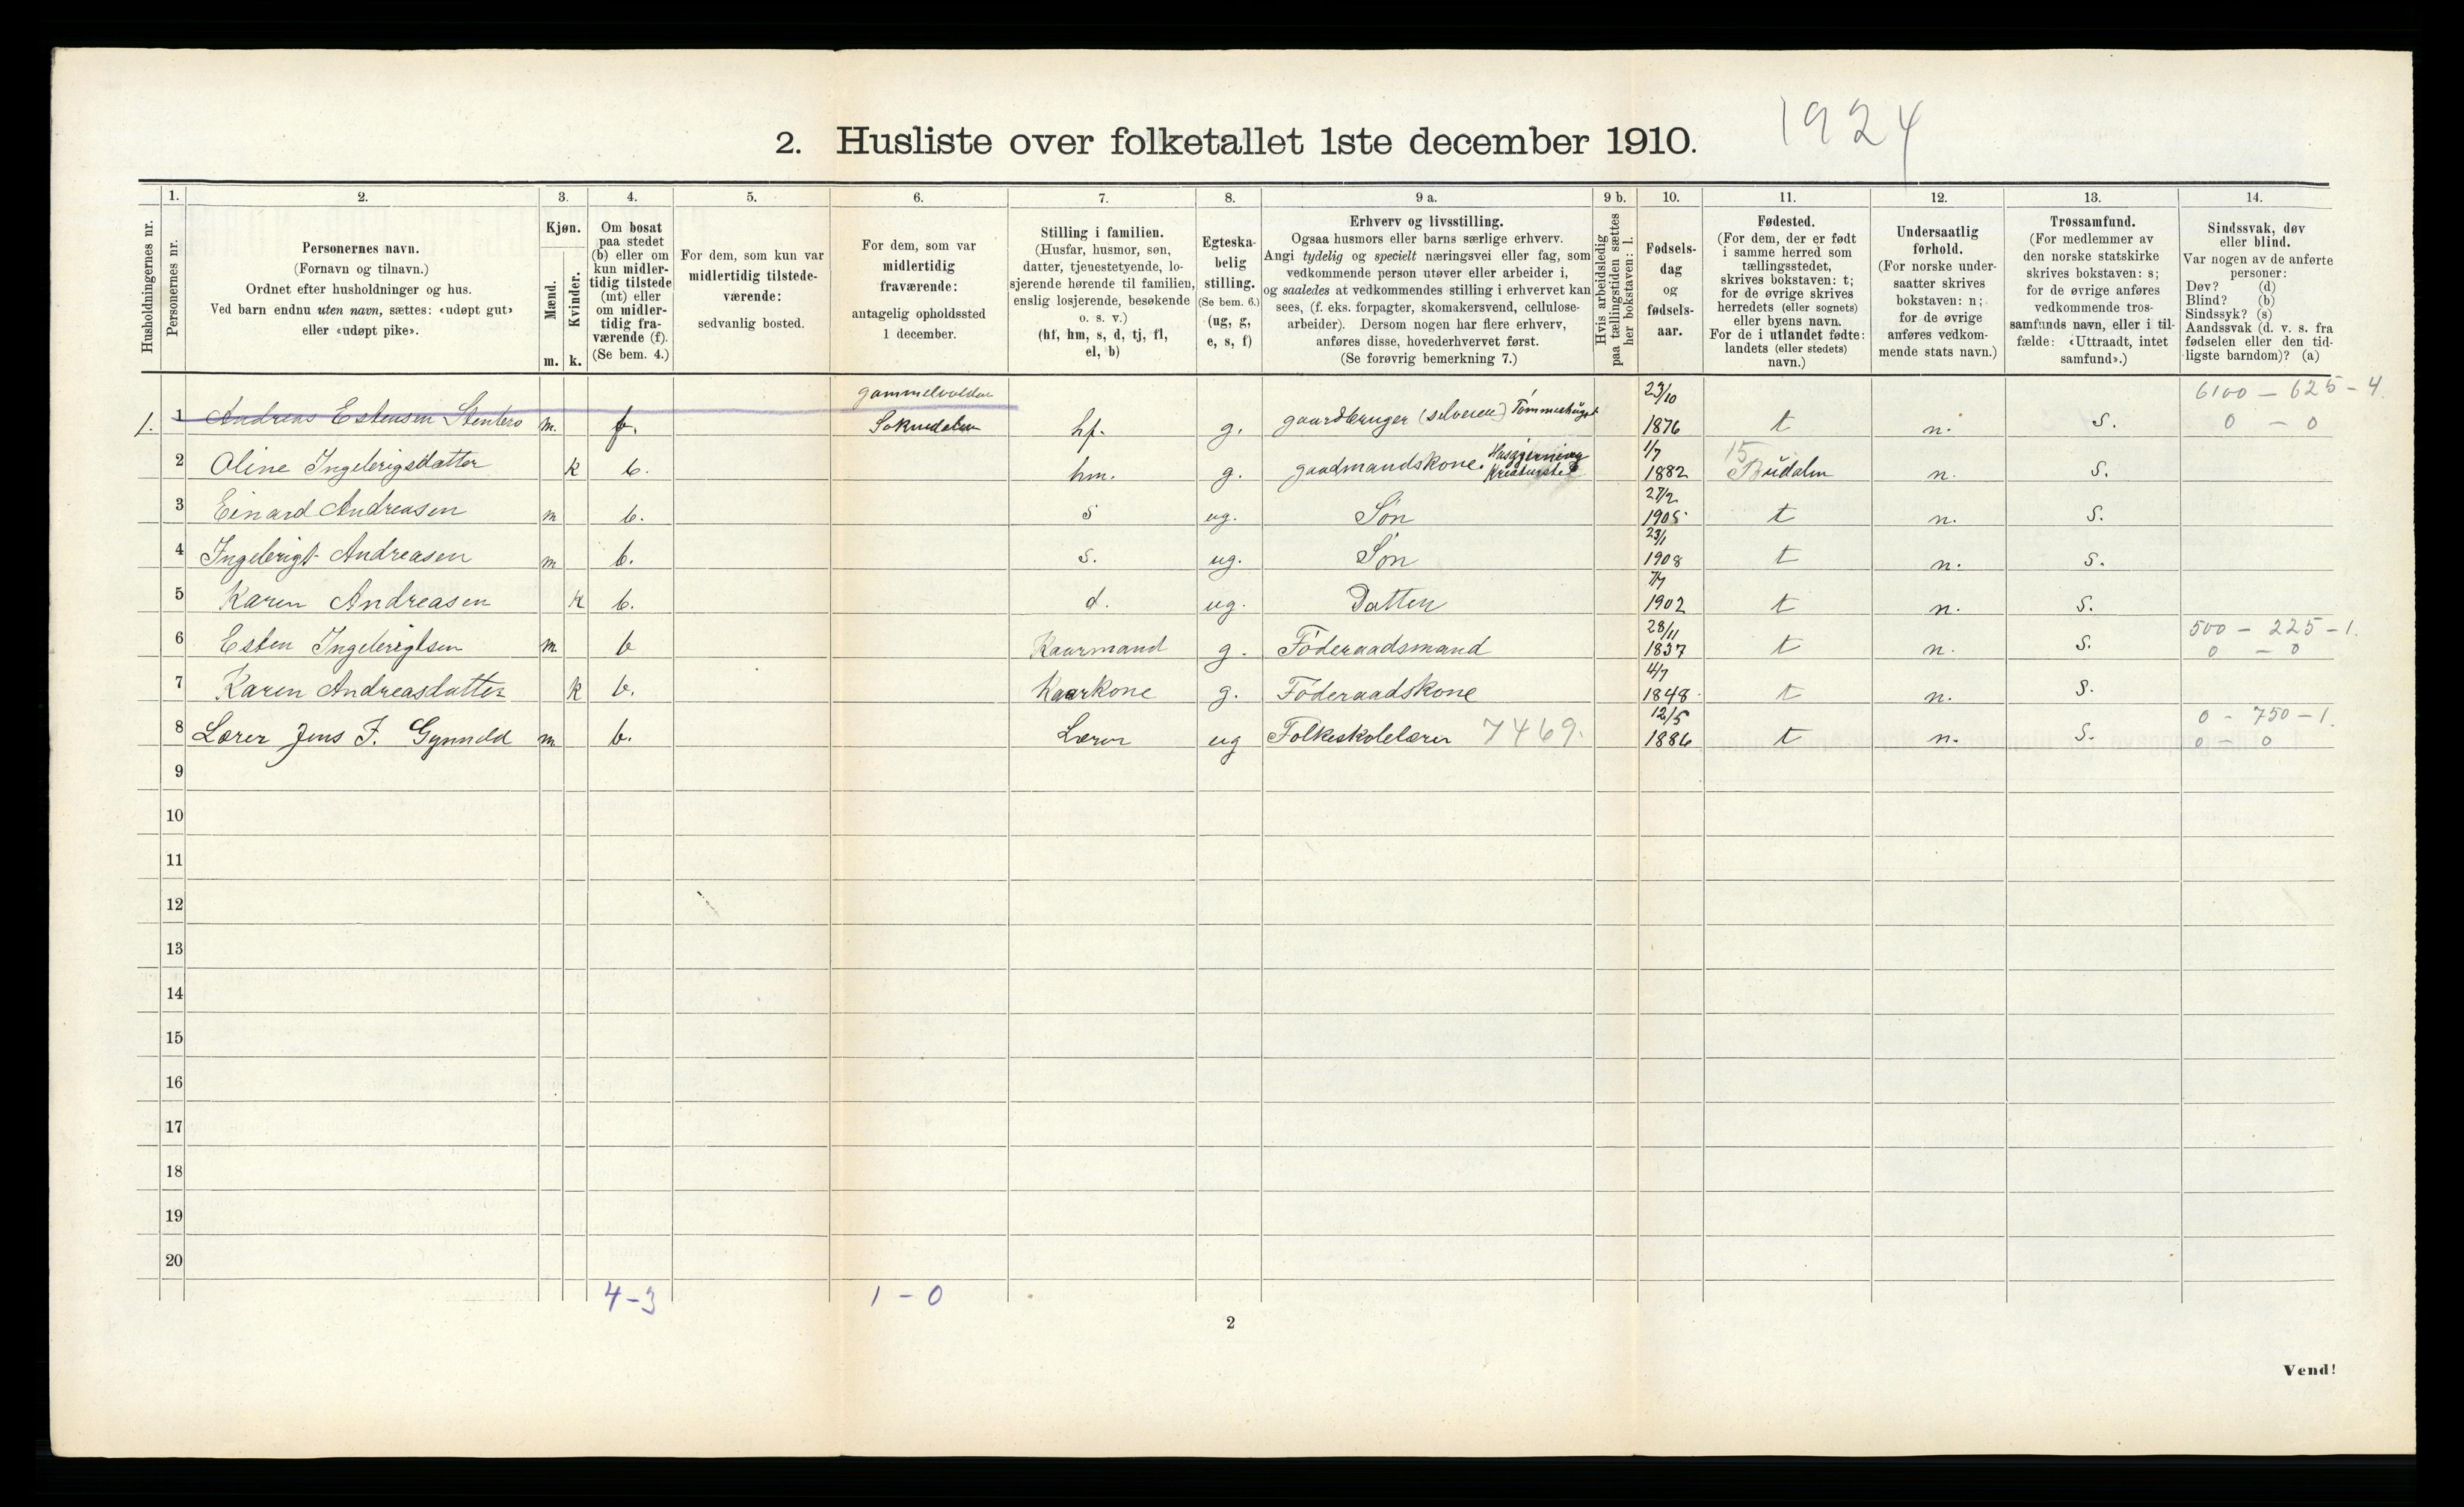 1924
2. Husliste over folketallet 1ste december 1910.
Husholdningernes nr.
1.
Personernes nr.
2.
Personernes navn.
(Fornavn og tilnavn.)
Ordnet efter husholdninger og hus.
Ved barn endnu uten navn, sættes: «udøpt gut»
eller «udøpt pike».
3.
Kjøn.
Mænd.
Kvinder.
m. k.
4.
Om bosat
paa stedet
(b) eller om
kun midler-
tidig tilstede
(mt) eller
om midler-
tidig fra-
værende (f).
(Se bem. 4.)
5.
For dem, som kun var
midlertidig tilstede-
værende:
sedvanlig bosted.
6.
For dem, som var
midlertidig
fraværende:
antagelig opholdssted
1 december.
7.
Stilling i familien.
(Husfar, husmor, søn,
datter, tjenestetyende, lo-
sjerende hørende til familien,
enslig losjerende, besøkende
o. s. v.)
(hf, hm, s, d, tj, fl,
el, b)
8.
Egteska-
belig
stilling.
(Se bem. 6.)
(ug, g,
e, s, f)
9 a.
Erhverv og livsstilling.
Ogsaa husmors eller barns særlige erhverv.
Angi tydelig og specielt næringsvei eller fag, som
vedkommende person utøver eller arbeider i,
og saaledes at vedkommendes stilling i erhvervet kan
sees, (f. eks. forpagter, skomakersvend, cellulose-
arbeider). Dersom nogen har flere erhverv,
anføres disse, hovederhvervet først.
(Se forøvrig bemerkning 7.)
9 b.
Hvis arbeidsledig
paa tællingstiden sættes
her bokstaven: l.
10.
Fødsels-
dag
og
fødsels-
aar.
11.
Fødested.
(For dem, der er født
i samme herred som
tællingsstedet,
skrives bokstaven: t;
for de øvrige skrives
herredets (eller sognets)
eller byens navn.
For de i utlandet fødte:
landets (eller stedets)
navn.)
12.
Undersaatlig
forhold.
(For norske under-
saatter skrives
bokstaven: n;
for de øvrige
anføres vedkom-
mende stats navn.)
13.
Trossamfund.
(For medlemmer av
den norske statskirke
skrives bokstaven: s;
for de øvrige anføres
vedkommende tros-
samfunds navn, eller i til-
fælde: «Uttraadt, intet
samfund».)
14.
Sindssvak, døv
eller blind.
Var nogen av de anførte
personer:
Døv? (d)
Blind? (b)
Sindssyk? (s)
Aandssvak (d. v. s. fra
fødselen eller den tid-
ligste barndom)? (a)
23/10 6100 - 625 - 4.
1. 1 Andreas Estensen Stenbro m. f. Soknedalen hf. g. gaardbruger (selveier) 1876 t n. s. 0 - 0
1/7 15
2 Oline Ingebrigsdatter k b. hm. g. gaadmandskone. Husgjerning 1882 Budalen n. s.
27/2
3 Einard Andreasen m b. s ug. Søn 1905 t n. s.
23/1
4 Ingebrigt Andreasen m b. s. ug. Søn 1908 t n. s.
5 Karen Andreasen k b. d. ug. Datten 1902 t n. s.
28/11 500 - 225 - 1.
6 Esten Ingebrigtsen m. b Kaarmand g. Føderaadsmand 1837 t n. s. 0 - 0
4/7
7 Karen Andreasdatter k b. Kaarkone g. Føderaadskone 1848 t n. s.
12/5 0 - 750 - 1.
8 Lærer Jens F. m b. Lærer ug Folkeskolelærer 7469. 1886 t n. s. 0 - 0
9
10
11
12
13
14
15
16
17
18
19
20
4-3 1 - 0
2
Vend!